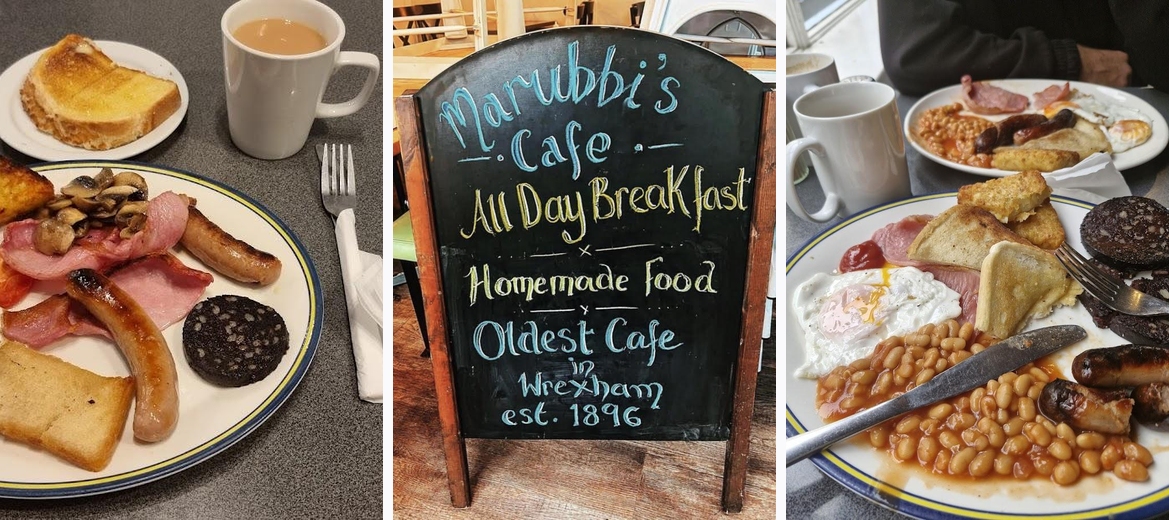 Marubbi's
Cafe
All Day Breakfast
Homemade Food
Oldest Cafe
in
Wrexham
est. 1896